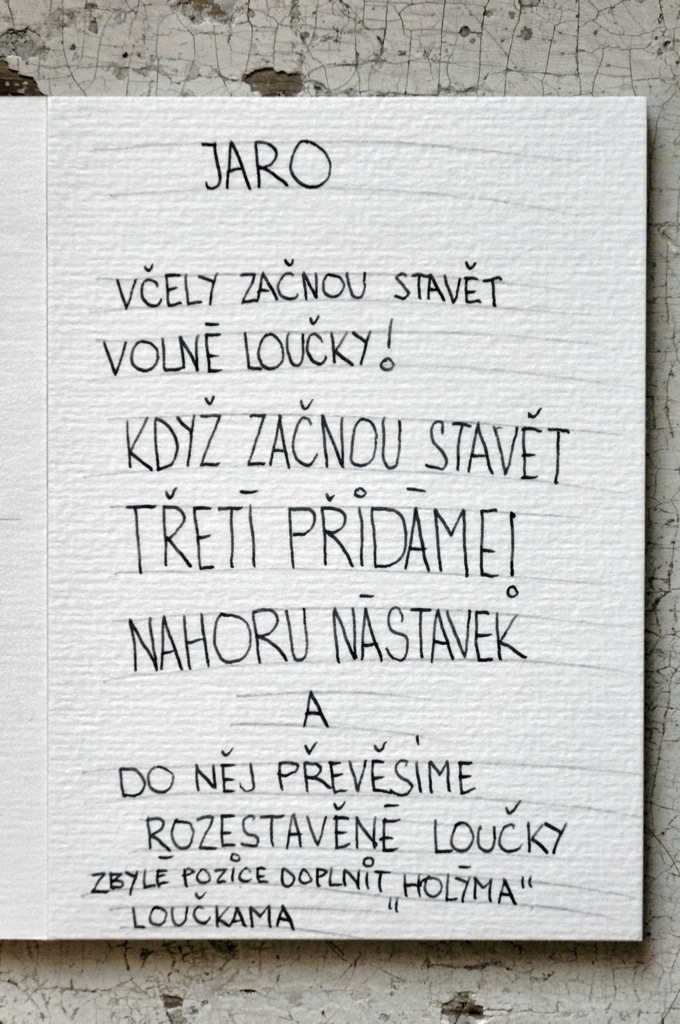 JARO
VČELY ZAČNOU STAVĚT
VOLNÉ LOUČKY!
KDYŽ ZAČNOU STAVĚT
TŘETÍ PŘIDÁME!
NAHORU NÁSTAVEK
A
DO NĚJ PŘEVĚSÍME
ROZESTAVĚNÉ LOUČKY
ZBYLÉ POZICE DOPLNIT "HOLÝMA"
LOUČKAMA